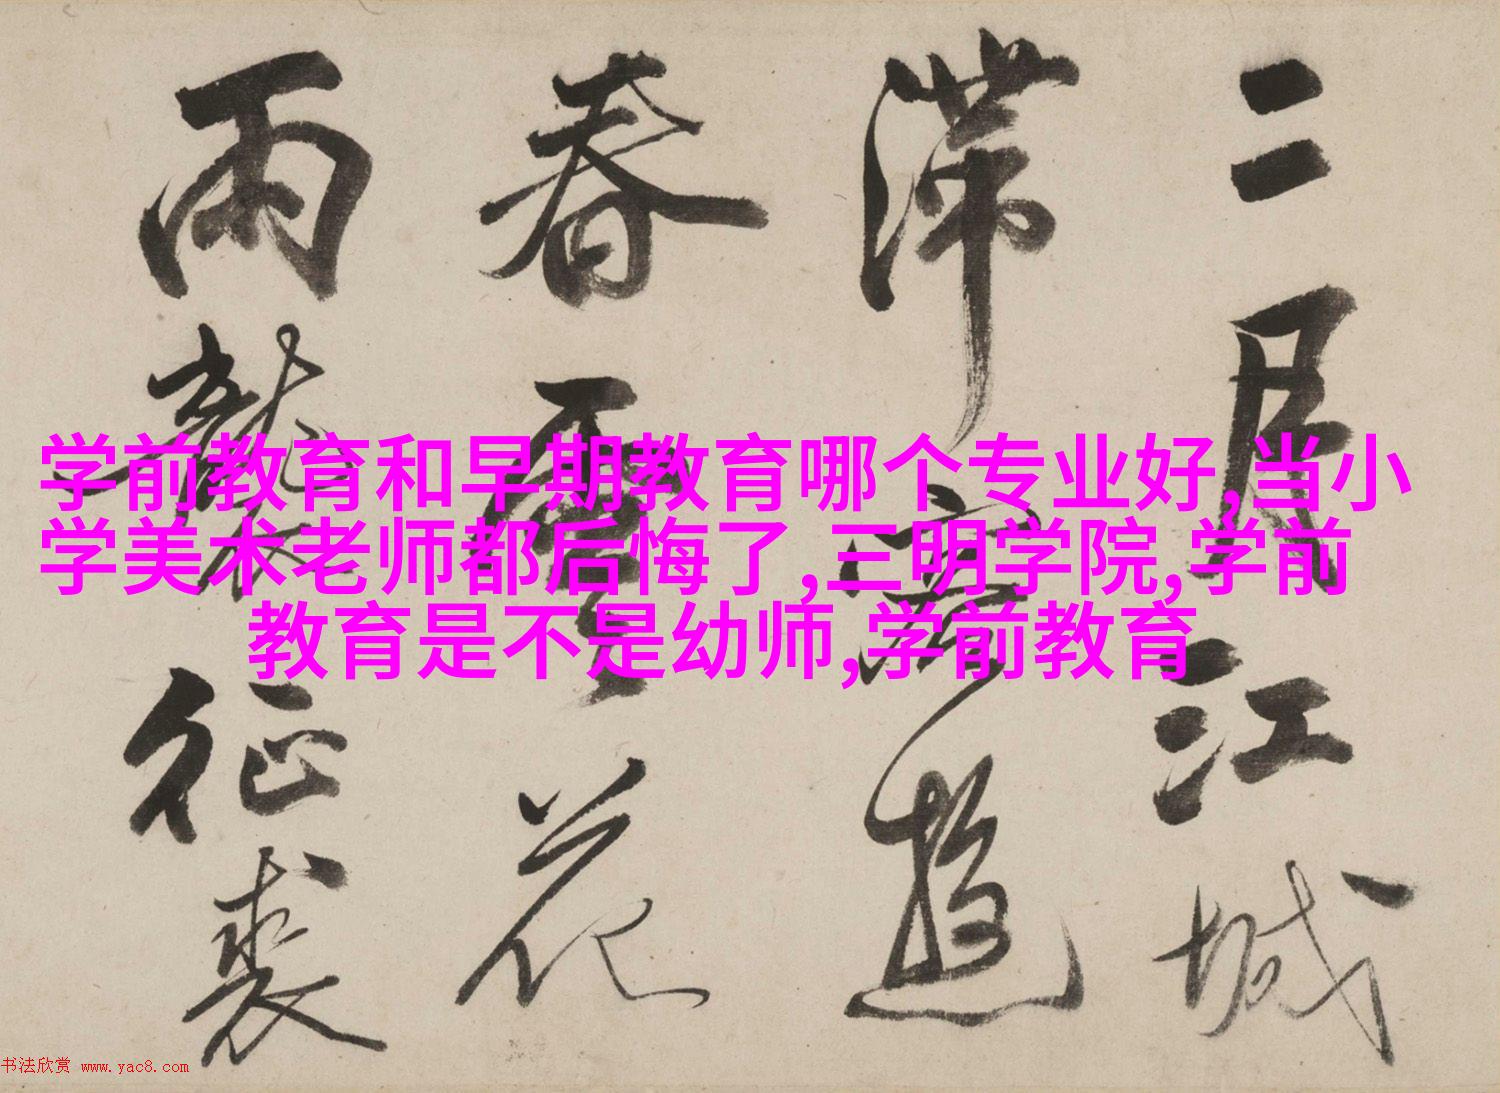 二月江城
滯遊
春花
雨襲征裘
学前教育和早期教育哪个专业好,当小
学美术老师都后悔了,三明学院,学前
教育是不是幼师,学前教育
书法欣赏 www.yac8.com